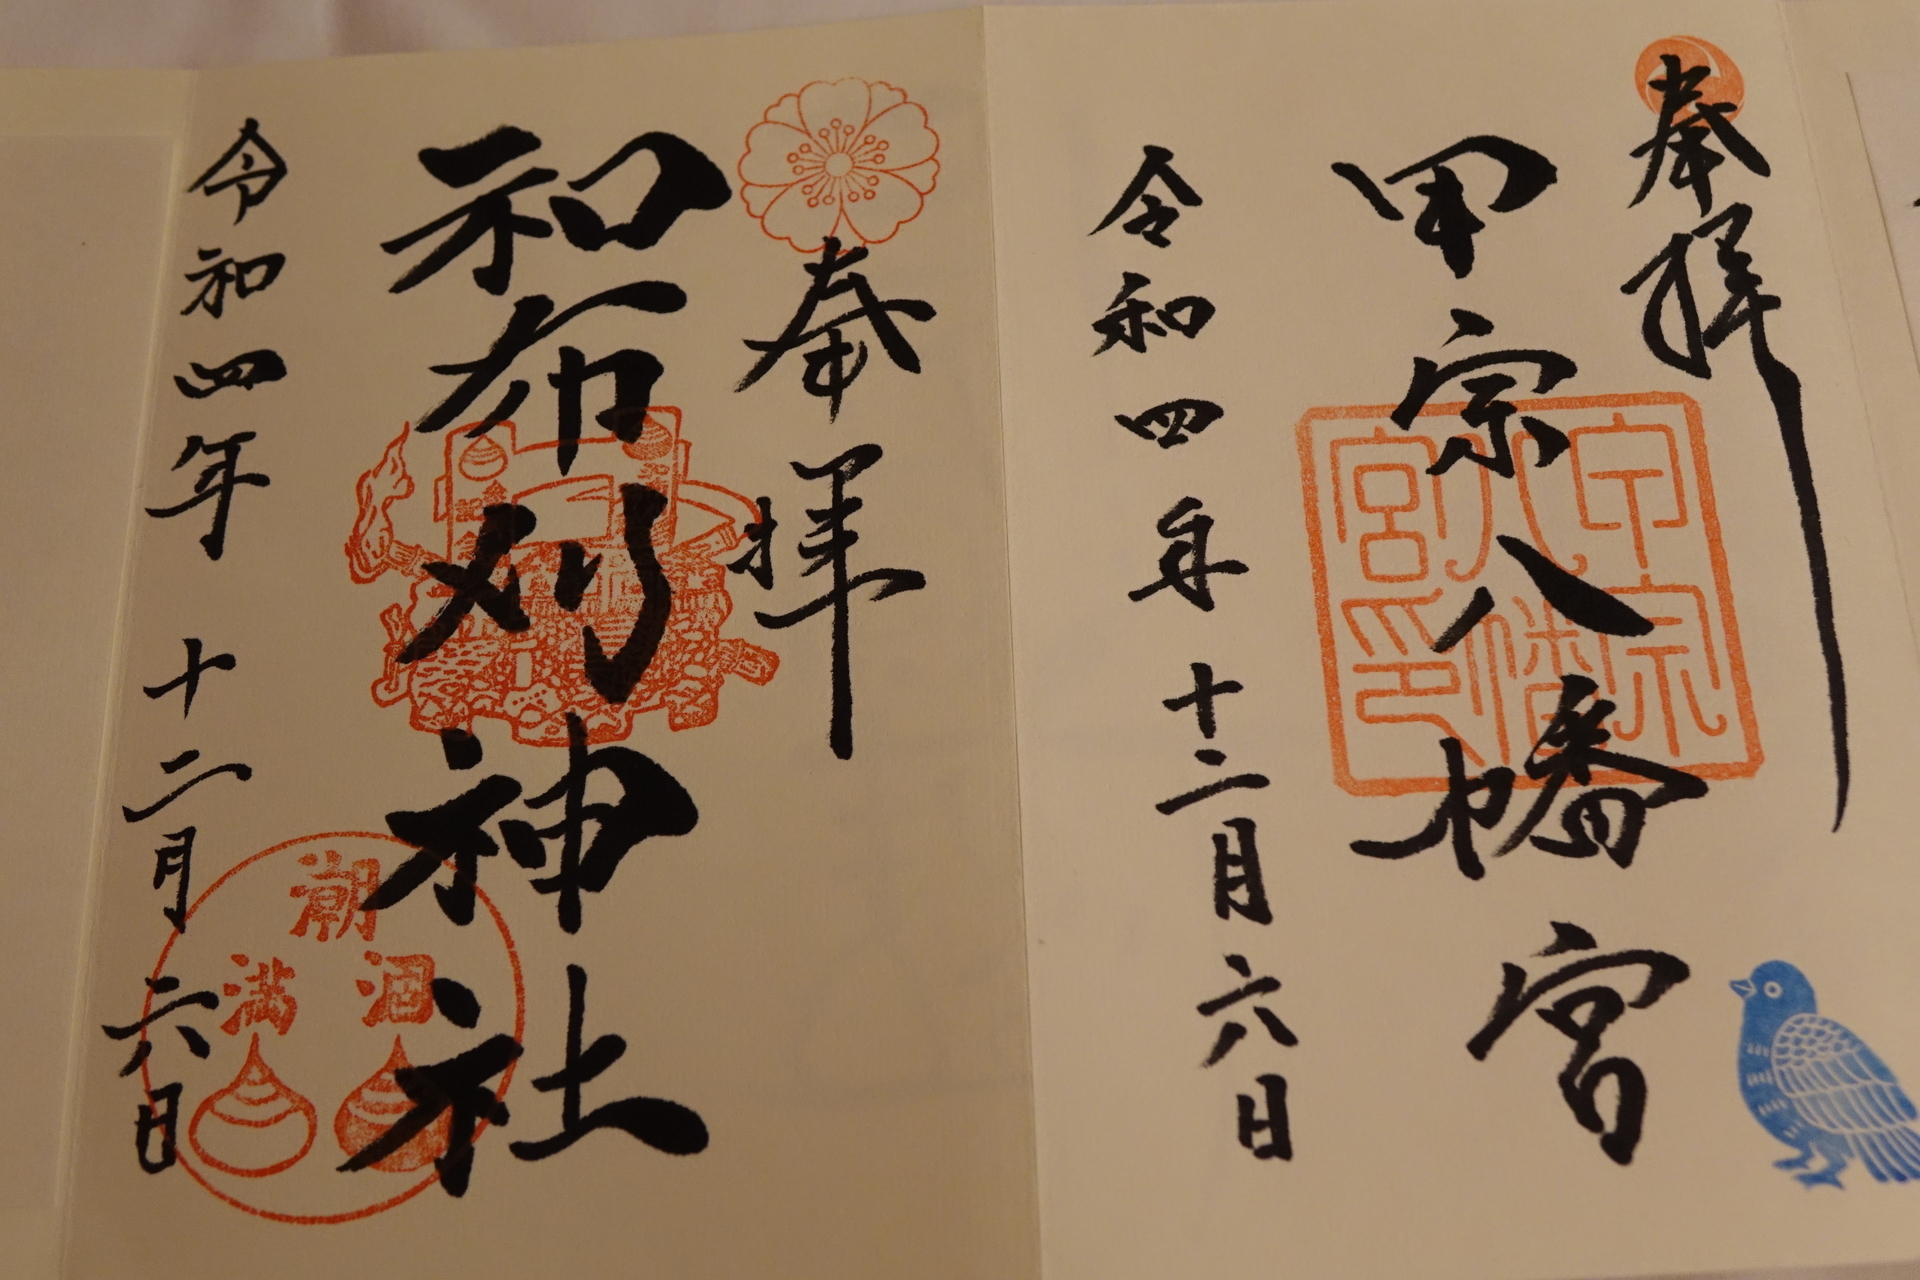 奉拝
甲宗八幡宮
甲宗
八幡
宮印
令和四年十二月六日
奉拝
和布刈神社
潮
涸
満
令和四年十二月六日